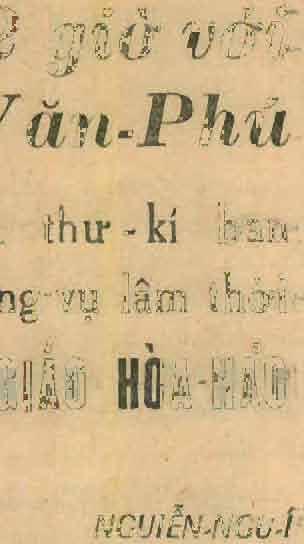 giờ với
Văn-Phú
thư-kí ban
ng-vụ lâm thời
GIÁO HÒA-HẢO
NGUIỄN-NGU-Í